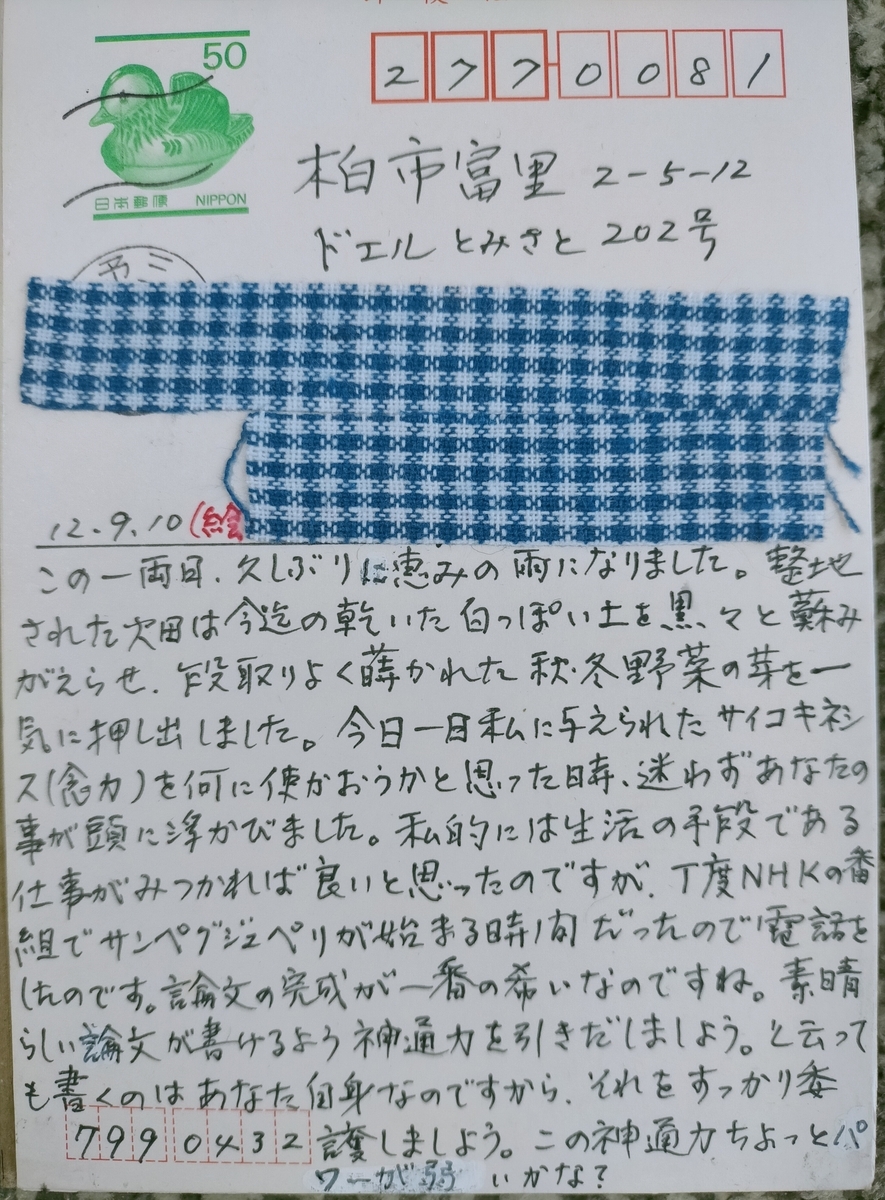 50
日本郵便 NIPPON
2770081
柏市富里 2-5-12
ドエルとみさと 202号
12.9.10 (絵
この一両日、久しぶりに恵みの雨になりました。整地
された次田は今迄の乾いた白っぽい土を黒々と蘇み
がえらせ、段取りよく蒔かれた秋・冬野菜の芽を一
気に押し出しました。今日一日私に与えられたサイコキネシ
ス(念力)を何に使かおうかと思った時、迷わずあなたの
事が頭に浮かびました。私的には生活の手段である
仕事がみつかれば良いと思ったのですが、丁度NHKの番
組でサンペグジュペリが始まる時間だったので電話を
したのです。論文の完成が一番の希いなのですね。素晴
らしい論文が書けるよう神通力を引きだしましよう。と云って
も書くのはあなた自身なのですから、それをすっかり委
譲しましよう。この神通力ちょっとパ
ワーが弱いかな?
7990432